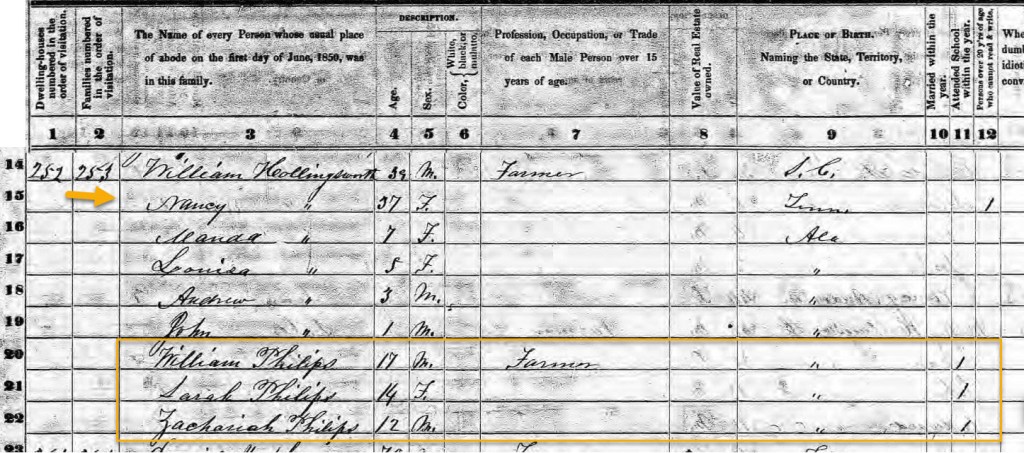 DESCRIPTION.
Dwelling-houses numbered in the order of visitation.
Families numbered in the order of visitation.
The Name of every Person whose usual place of abode on the first day of June, 1850, was in this family.
Age.
Sex.
Color, { White, black, or mulatto.
Profession, Occupation, or Trade of each Male Person over 15 years of age.
Value of Real Estate owned.
PLACE OF BIRTH. Naming the State, Territory, or Country.
Married within the year.
Attended School within the year.
Persons over 20 y'rs of age who cannot read & write.
Whe
dumb
idiot
conv
1 2 3 4 5 6 7 8 9 10 11 12
14 252 253 William Hollingsworth 39 M. Farmer S. C.
15 Nancy " 37 F. Tenn. 1
16 Manda " 7 F. Ala
17 Louisa " 5 F. "
18 Andrew " 3 M. "
19 John " 1 M. "
20 William Philips 17 M. Farmer " 1
21 Sarah Philips 14 F. " 1
22 Zachariah Philips 12 M. " 1
23